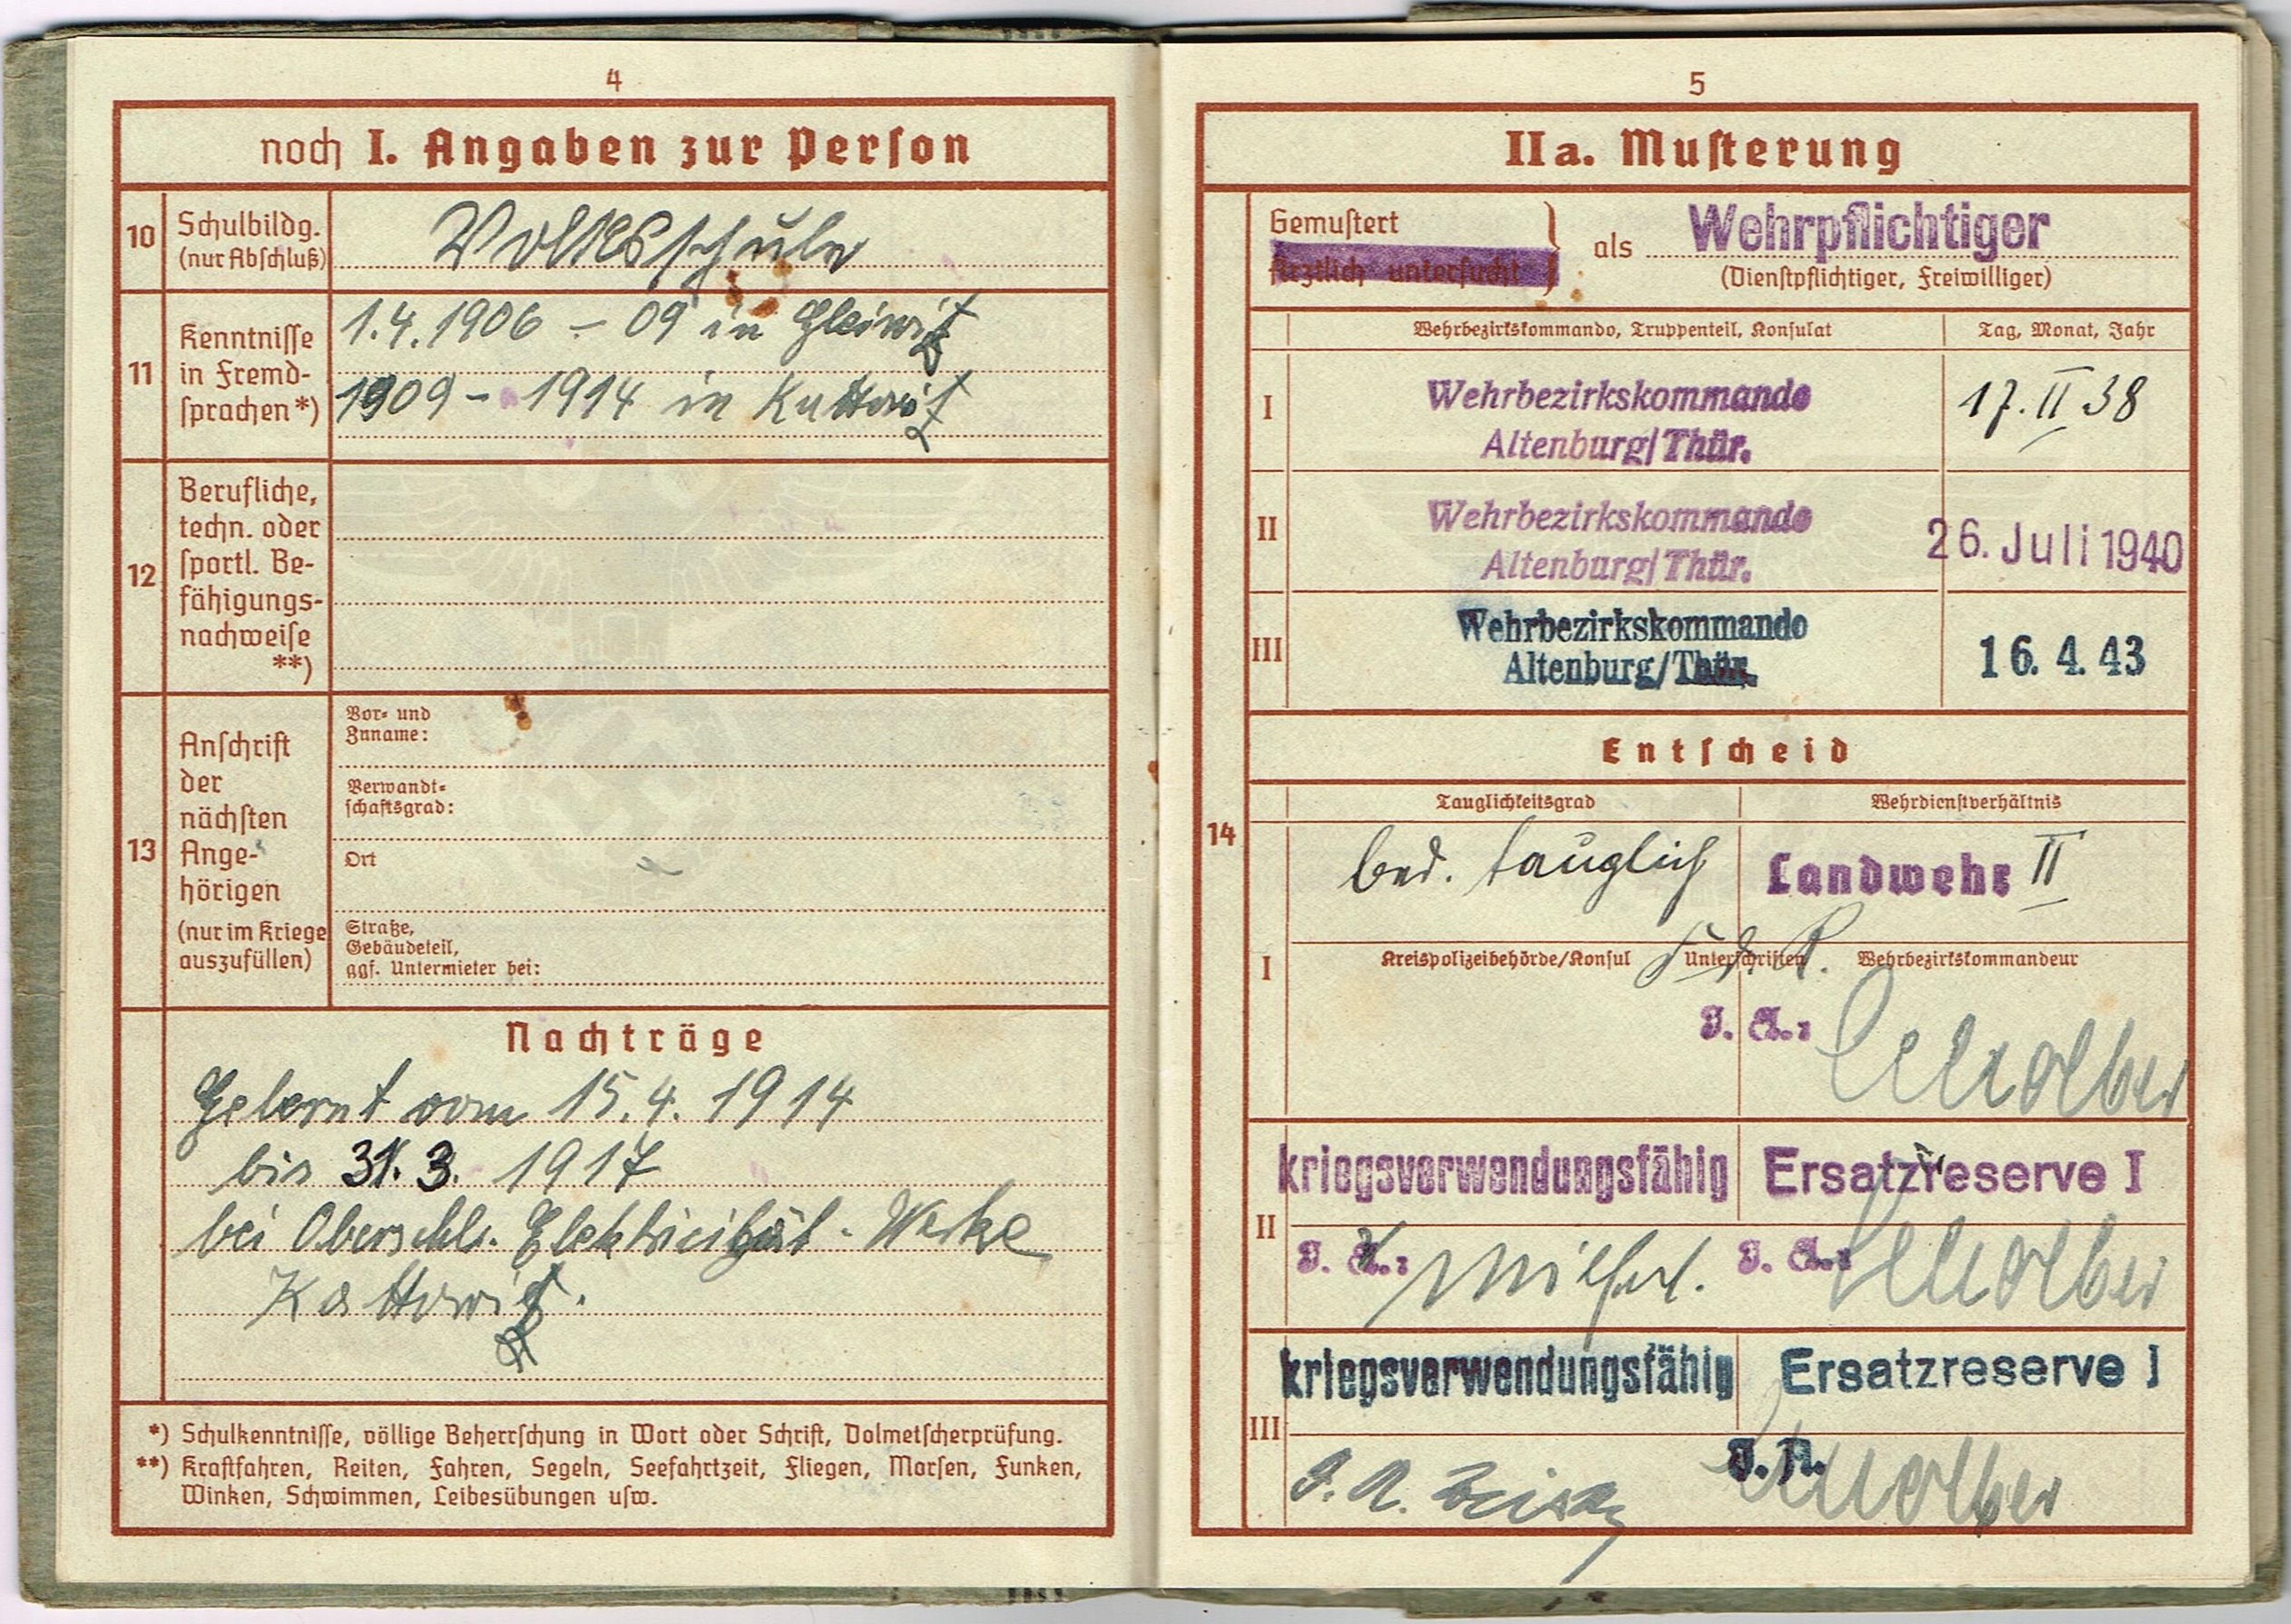 4
noch I. Angaben zur Person
10
Schulbildg.
(nur Abschluß)
Volksschule
11
Kenntnisse
in Fremd-
sprachen*)
1.4.1906 – 09 in Gleiwitz
1909 – 1914 in Kattowitz
12
Berufliche,
techn. oder
sportl. Be-
fähigungs-
nachweise
**)
13
Anschrift
der
nächsten
Ange-
hörigen
(nur im Kriege
auszufüllen)
Vor- und
Zuname:
Verwandt-
schaftsgrad:
Ort
Straße,
Gebäudeteil,
ggf. Untermieter bei:
Nachträge
Gelernt vom 15.4.1914
bis 31.3. 1917
bei Oberschls. Elektricität-Werke
Kattowitz.
*) Schulkenntnisse, völlige Beherrschung in Wort oder Schrift, Dolmetscherprüfung.
**) Kraftfahren, Reiten, Fahren, Segeln, Seefahrtzeit, Fliegen, Morsen, Funken,
Winken, Schwimmen, Leibesübungen usw.
5
IIa. Musterung
14
Gemustert
ärztlich untersucht
als Wehrpflichtiger
(Dienstpflichtiger, Freiwilliger)
Wehrbezirkskommando, Truppenteil, Konsulat
Tag, Monat, Jahr
I
Wehrbezirkskommando
Altenburg/Thür.
17. II 38
II
Wehrbezirkskommando
Altenburg/Thür.
26. Juli 1940
III
Wehrbezirkskommando
Altenburg/Thür.
16. 4. 43
Entscheid
Tauglichkeitsgrad
Wehrdienstverhältnis
I
bed. tauglich
Landwehr II
F. d. R.
Kreispolizeibehörde/Konsul
Unterschriften
Wehrbezirkskommandeur
J. A.:
II
kriegsverwendungsfähig
Ersatzreserve I
J. A.:
J. A.:
III
kriegsverwendungsfähig
Ersatzreserve I
J. A.
J. A.